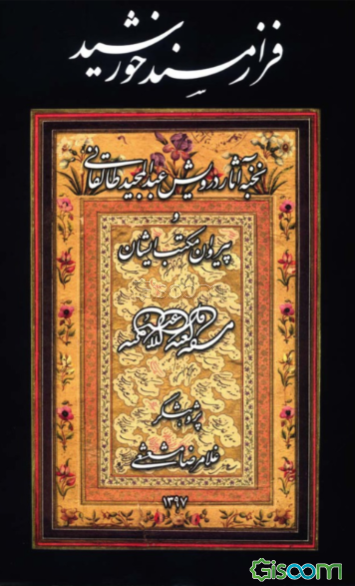 فراز مسند خورشید
نخبه آثار درویش عبدالمجید طالقانی
و
پیروان مکتب ایشان
پژوهشگر
غلامرضا مشعشعی
۱۳۹۷
Gisoom